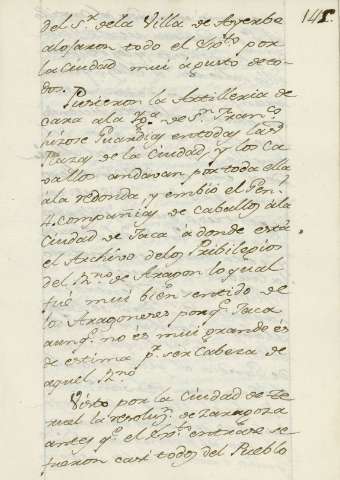 145.
del S.r dela Villa de Ayerbe
alojaron todo el Ex.to por
la Ciudad mui à gusto de to-
dos.
Pusieron la Artilleria de
cara ala de S.n Fran.co
hizose Guardias entodas las
Plazas de la Ciudad, y los Ca-
vallos andavan por toda ella
ala redonda, y embiò el Gen.l
4. compañias de caballos àla
Ciudad de Jaca à donde està
el Archivo delos Pribilegios
del R.no de Aragon lo qual
fuè mui bien sentido de
los Aragoneses por q.e Jaca
aunq.e no ès mui grande ès
de estima p.r ser Cabeza de
aquel R.no
Visto por la Ciudad de Te-
ruel la resoluz.n de Zaragoza
antes q.e el Ex.to entràse se
fueron casi todos del Pueblo